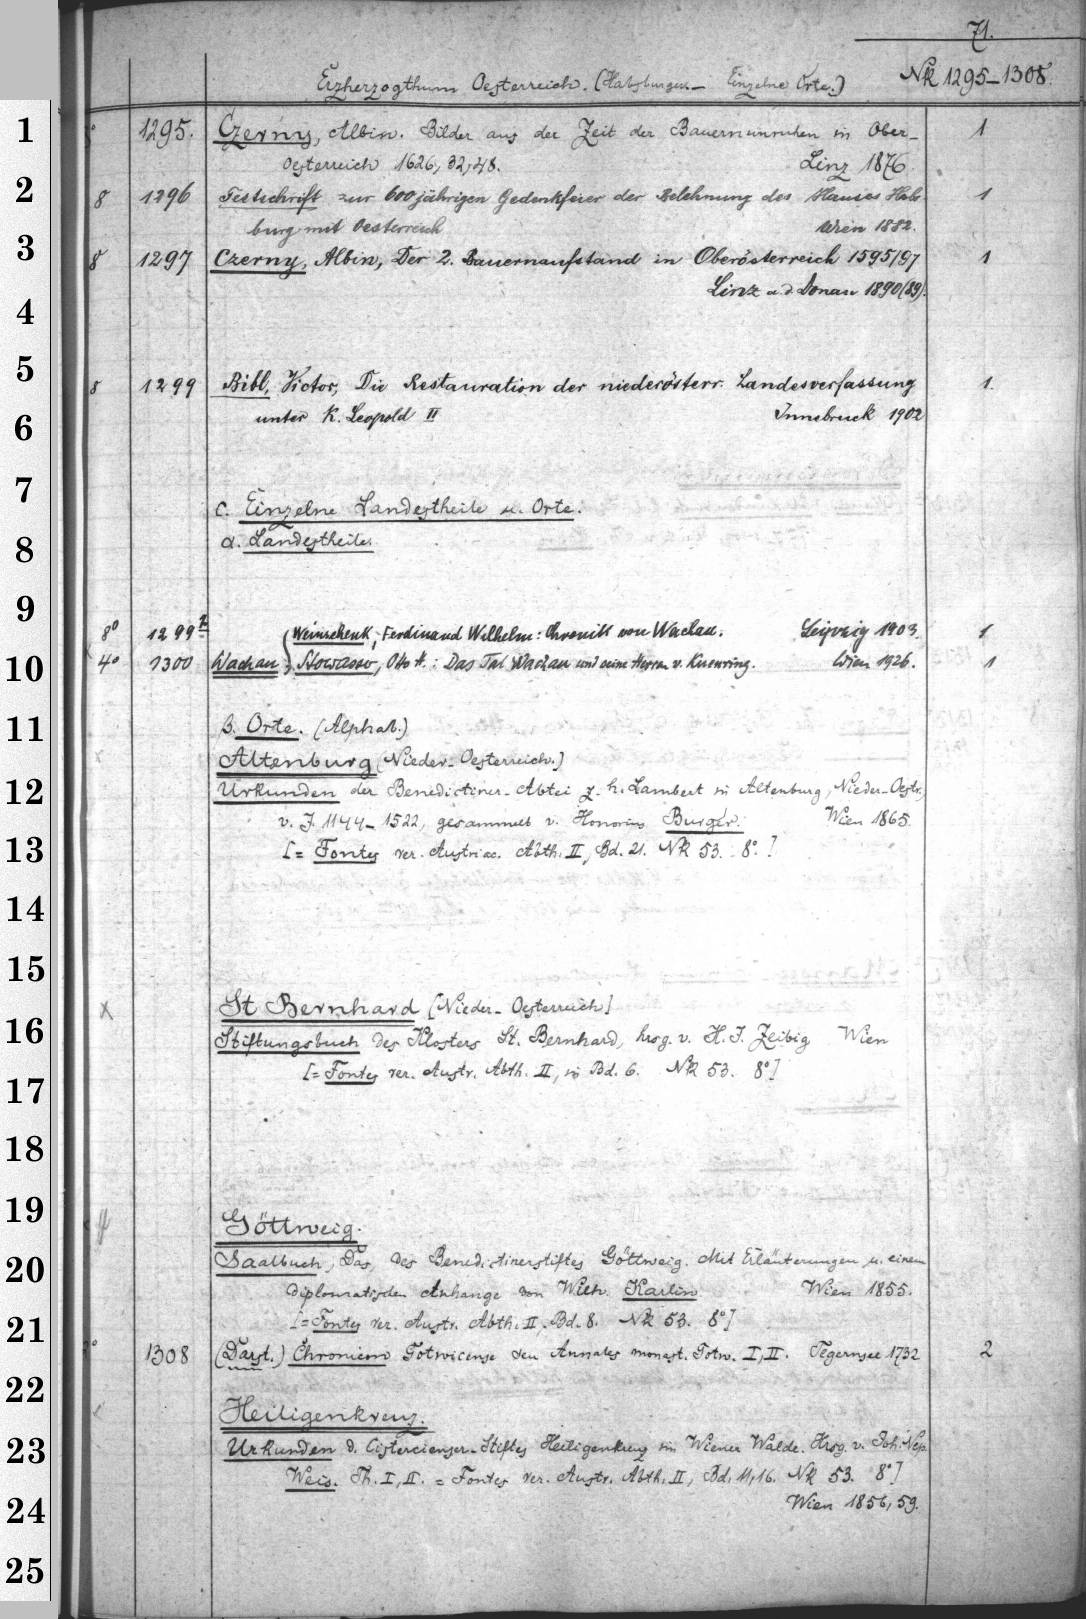 71.
Erzherzogthum Oesterreich. (Habsburger – Einzelne Orte.) Nr 1295–1308.
1
8° 1295. Czerny, Albin. Bilder aus der Zeit der Bauernunruhen in Ober-
Oesterreich 1626, 32, 48. Linz 1876. 1
2
8 1296 Festschrift zur 600jährigen Gedenkfeier der Belehnung des Hauses Habs- 1
burg mit Oesterreich Wien 1882.
3
8 1297 Czerny, Albin, Der 2. Bauernaufstand in Oberösterreich 1595/97 1
Linz a. d. Donau 1890(89).
4
5
8 1299 Bibl, Victor, Die Restauration der niederösterr. Landesverfassung 1.
6
unter K. Leopold II Innsbruck 1902
7
c. Einzelne Landestheile u. Orte.
8
α. Landestheile.
9
8° 1299 Weinschenk, Ferdinand Wilhelm: Chronik von Wachau. Leipzig 1903. 1
10
4° 1300 Wachau Stowasser, Otto H.: Das Tal Wachau und seine Herren v. Kuenring. Wien 1926. 1
11
β. Orte. (Alphab.)
Altenburg (Nieder-Oesterreich.)
12
Urkunden der Benedictiner-Abtei z. h. Lambert in Altenburg, Nieder-Oestr.,
v. J. 1144–1522, gesammelt v. Honorius Burger. Wien 1865.
13
[= Fontes rer. Austriac. Abth. II, Bd. 21. Nr 53. 8°.]
14
15
St Bernhard [Nieder-Oesterreich]
16
Stiftungsbuch des Klosters St. Bernhard, hrsg. v. H. J. Zeibig Wien
[= Fontes rer. Austr. Abth. II, in Bd. 6. Nr 53. 8°]
17
18
19
Göttweig.
20
Saalbuch, Das, des Benedictinerstiftes Göttweig. Mit Erläuterungen u. einem
diplomatischen Anhange von Wilh. Karlin Wien 1855.
21
[= Fontes rer. Austr. Abth. II, Bd. 8. Nr 53. 8°]
2° 1308 (Darst.) Chronicon Gotwicense seu Annales monast. Gotw. I, II. Tegernsee 1732 2
22
Heiligenkreuz.
23
Urkunden d. Cistercienser-Stiftes Heiligenkreuz im Wiener Walde. Hrsg. v. Joh. Nep.
Weis. Th. I, II. = Fontes rer. Austr. Abth. II, Bd. 11, 16. Nr 53. 8°]
24
Wien 1856, 59.
25